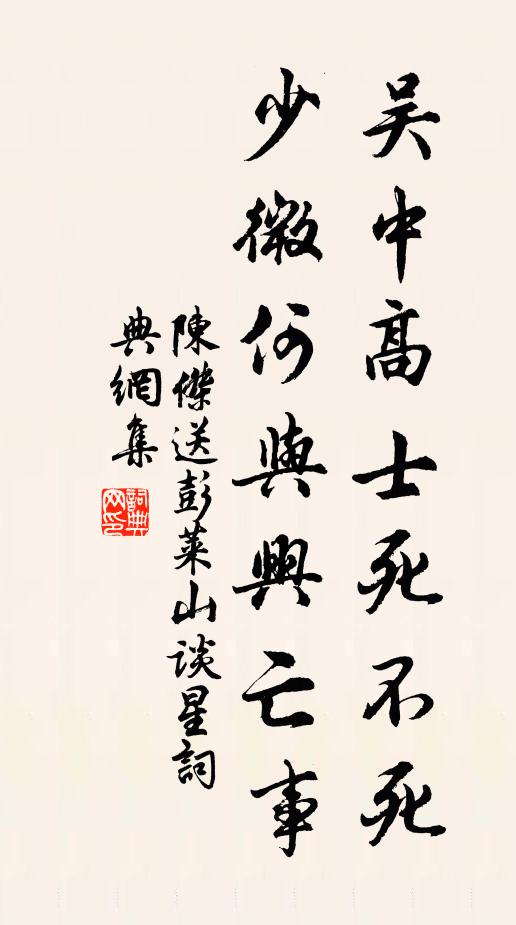 吴中高士死不死
少微何與興亡事
陳傑送彭萊山談星詞
典網集
詞典网印